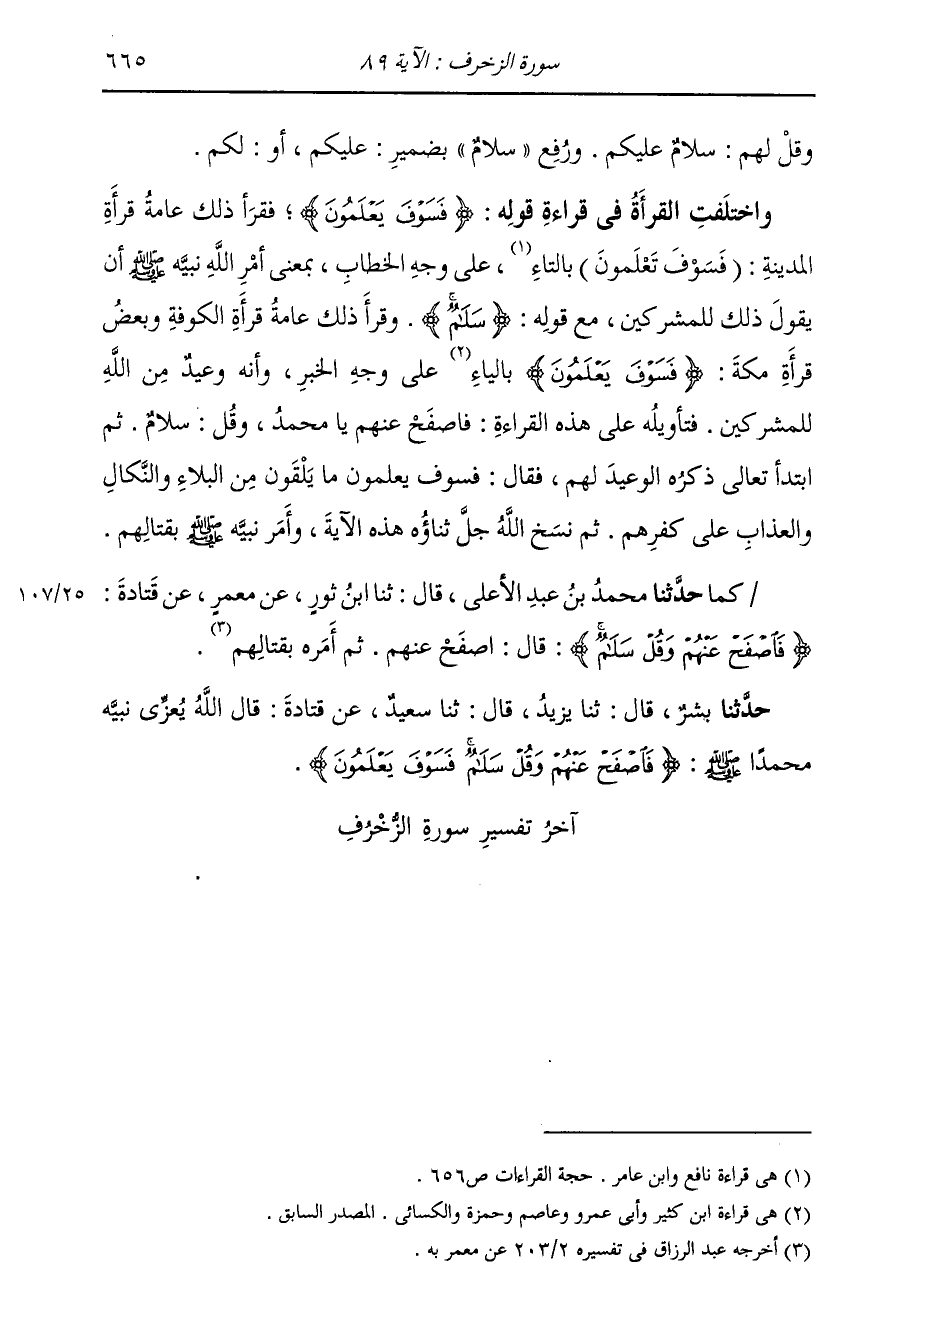 سورة الزخرف : الآية ٨٩ ٦٦٥
وقلْ لهم : سلامٌ عليكم . ورُفِع « سلامٌ » بضميرِ : عليكم ، أو : لكم .
واختلَفتِ القرأَةُ فى قراءةِ قولِه : ﴿ فَسَوْفَ يَعْلَمُونَ ﴾ ؛ فقرَأ ذلك عامةُ قرأَةِ
المدينةِ : ( فَسَوْفَ تَعْلَمونَ ) بالتاءِ(١) ، على وجهِ الخطابِ ، بمعنى أمْرِ اللَّهِ نبيَّه ﷺ أن
يقولَ ذلك للمشركين ، مع قولِه : ﴿ سَلَٰمٌۚ ﴾ . وقرأ ذلك عامةُ قرأَةِ الكوفةِ وبعضُ
قرأَةِ مكةَ : ﴿ فَسَوْفَ يَعْلَمُونَ ﴾ بالياءِ(٢) على وجهِ الخبرِ ، وأنه وعيدٌ مِن اللَّهِ
للمشركين . فتأويلُه على هذه القراءةِ : فاصفَحْ عنهم يا محمدُ ، وقُل : سلامٌ . ثم
ابتدأ تعالى ذكرُه الوعيدَ لهم ، فقال : فسوف يعلمون ما يَلْقَون مِن البلاءِ والنَّكالِ
والعذابِ على كفرِهم . ثم نسَخ اللَّهُ جلَّ ثناؤُه هذه الآيةَ ، وأَمَر نبيَّه ﷺ بقتالِهم .
/ كما حدَّثنا محمدُ بنُ عبدِ الأعلى ، قال : ثنا ابنُ ثورٍ ، عن معمرٍ ، عن قَتادةَ : ١٠٧/٢٥
﴿ فَٱصْفَحْ عَنْهُمْ وَقُلْ سَلَٰمٌۚ ﴾ : قال : اصفَحْ عنهم . ثم أَمَره بقتالِهم(٣) .
حدَّثنا بشرٌ ، قال : ثنا يزيدُ ، قال : ثنا سعيدٌ ، عن قتادةَ : قال اللَّهُ يُعزِّى نبيَّه
محمدًا ﷺ : ﴿ فَٱصْفَحْ عَنْهُمْ وَقُلْ سَلَٰمٌۚ فَسَوْفَ يَعْلَمُونَ ﴾ .
آخرُ تفسيرِ سورةِ الزُّخْرُفِ
(١) هى قراءة نافع وابن عامر . حجة القراءات ص٦٥٦ .
(٢) هى قراءة ابن كثير وأبى عمرو وعاصم وحمزة والكسائى . المصدر السابق .
(٣) أخرجه عبد الرزاق فى تفسيره ٢٠٣/٢ عن معمر به .